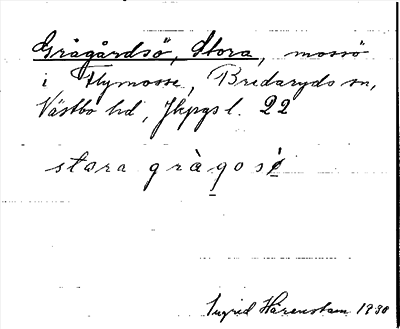 Grågårdsö, Stora, mossö
i Flymosse, Bredaryds sn,
Västbo hd, Jkpgs l. 22
stara gràgosö̀
Ingrid Härenstam 1930